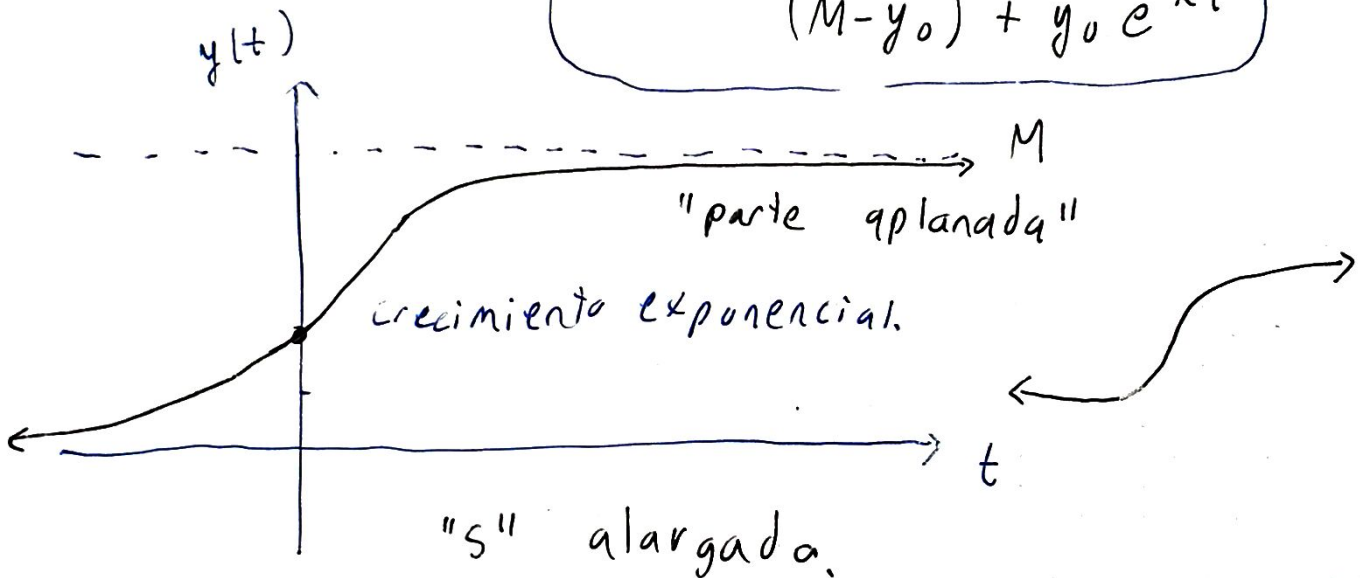 (M-y₀) + y₀ e
y(t)
M
"parte aplanada"
crecimiento exponencial.
t
"S" alargada.